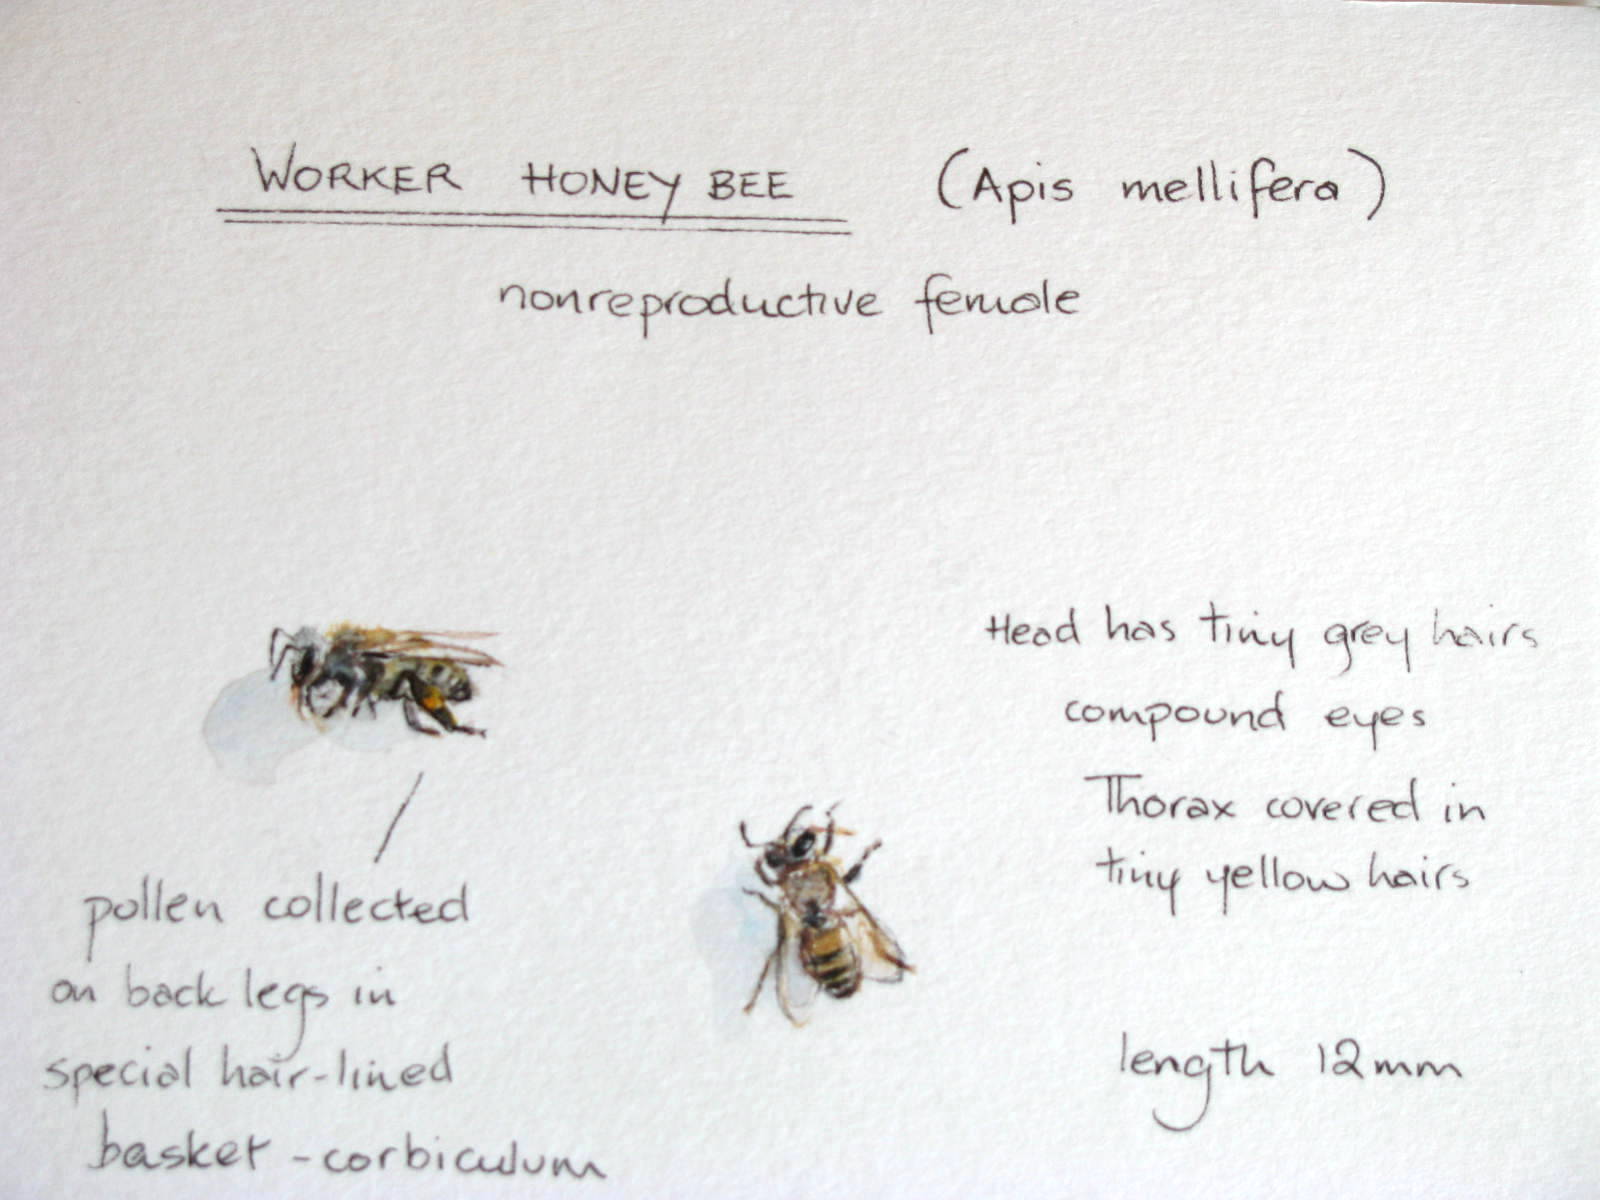 WORKER HONEY BEE (Apis mellifera)
nonreproductive female
Head has tiny grey hairs
compound eyes
Thorax covered in
tiny yellow hairs
length 12mm
pollen collected
on back legs in
special hair-lined
basket - corbiculum